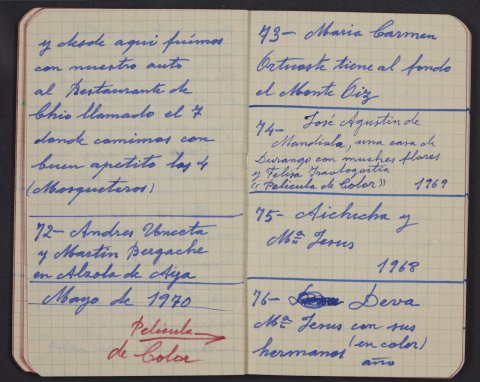 y desde aqui fuimos
con nuestro auto
al Restaurante de
Chio llamado el 7
donde comimos con
buen apetito los 4
(Mosqueteros)
72- Andres Unceta
y Martin Bergache
en Alzola de Aya
Mayo de 1970
Pelicula
de Color
73- Maria Carmen
Ortuoste tiene al fondo
el Monte Oiz
74- José Agustin de
Mandiola, una casa de
Durango con muchas flores
y Felisa
("Pelicula de Color") 1969
75- Aichicha y
Mª Jesus
1968
76- Deva
Mª Jesus con sus
hermanos (en color)
año